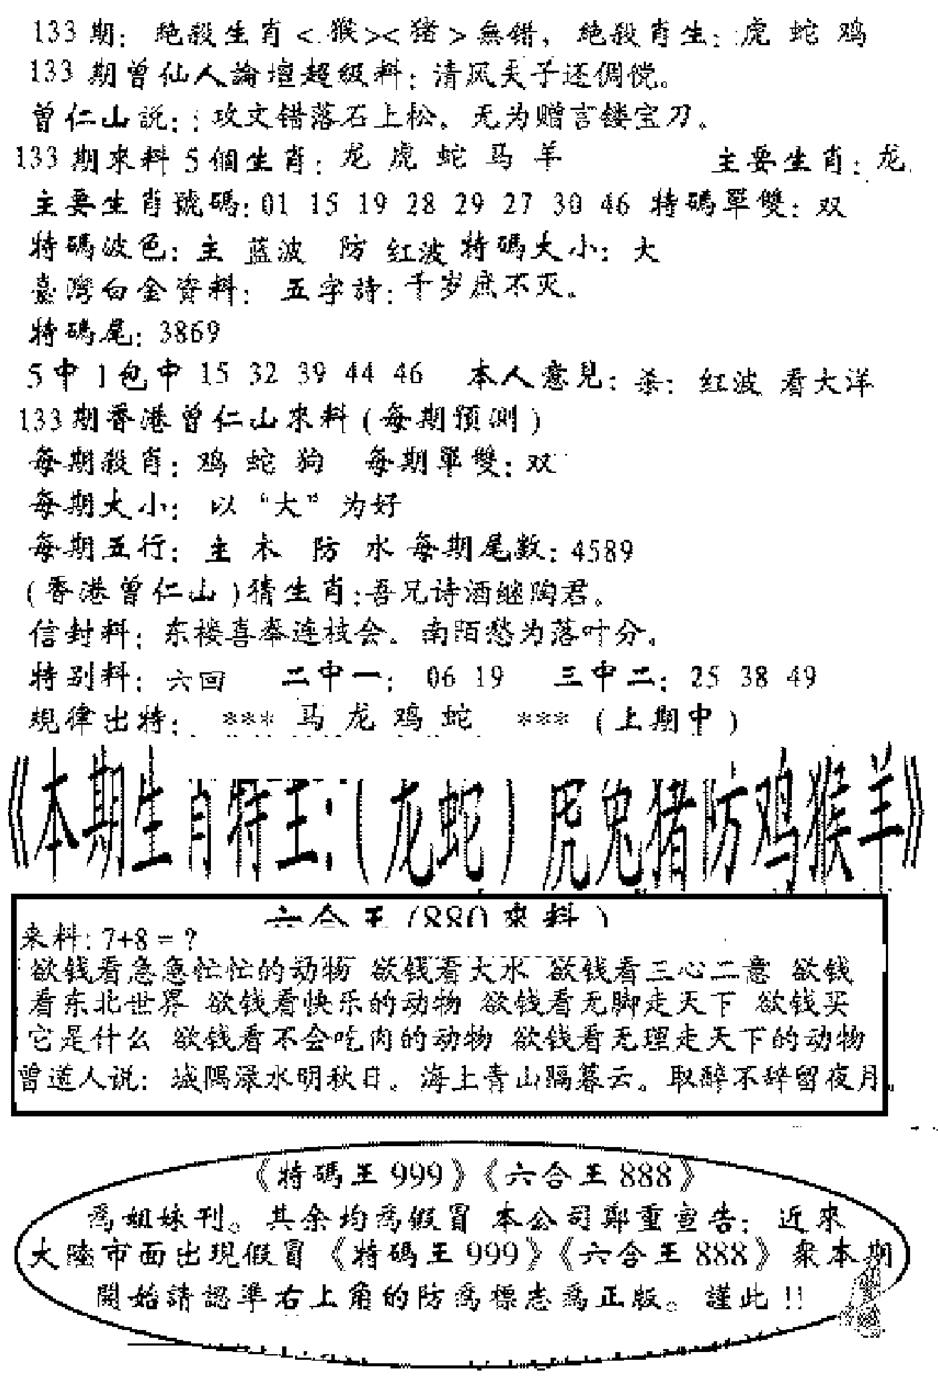 133期：絶殺生肖<猴><猪>無錯，絶殺肖生：虎 蛇 鸡
133期曾仙人論壇超級料：清风天子还倜傥。
曾仁山説：攻文错落石上松。无为赠言镂宝刀。
133期來料5個生肖：龙 虎 蛇 马 羊 主要生肖：龙
主要生肖號碼：01 15 19 28 29 27 30 46 特碼單雙：双
特碼波色：主 蓝波 防 红波 特碼大小：大
臺灣白金資料： 五字詩：千岁底不灭。
特碼尾：3869
5中1包中 15 32 39 44 46 本人意見：杀：红波 看大洋
133期香港曾仁山來料(每期預測)
每期殺肖：鸡 蛇 狗 每期單雙：双
每期大小： 以“大”为好
每期五行：主 木 防 水 每期尾数：4589
(香港曾仁山)猜生肖：吾兄诗酒继陶君。
信封料：东楼喜奉连枝会。南陌愁为落叶分。
特别料：六回 二中一：06 19 三中二：25 38 49
規律出特： *** 马 龙 鸡 蛇 *** (上期中)
《本期生肖特王：(龙蛇)虎兔猪防鸡猴羊》
六合王(880來料)
来料：7+8=？
欲钱看急急忙忙的动物 欲钱看大水 欲钱看三心二意 欲钱
看东北世界 欲钱看快乐的动物 欲钱看无脚走天下 欲钱买
它是什么 欲钱看不会吃肉的动物 欲钱看无理走天下的动物
曾道人说：城隅渌水明秋日。海上青山隔暮云。取醉不辞留夜月。
《特碼王999》《六合王888》
爲姐妹刊。其余均爲假冒 本公司鄭重宣告：近來
大陸市面出現假冒《特碼王999》《六合王888》衆本期
開始請認準右上角的防爲標志爲正版。謹此!!